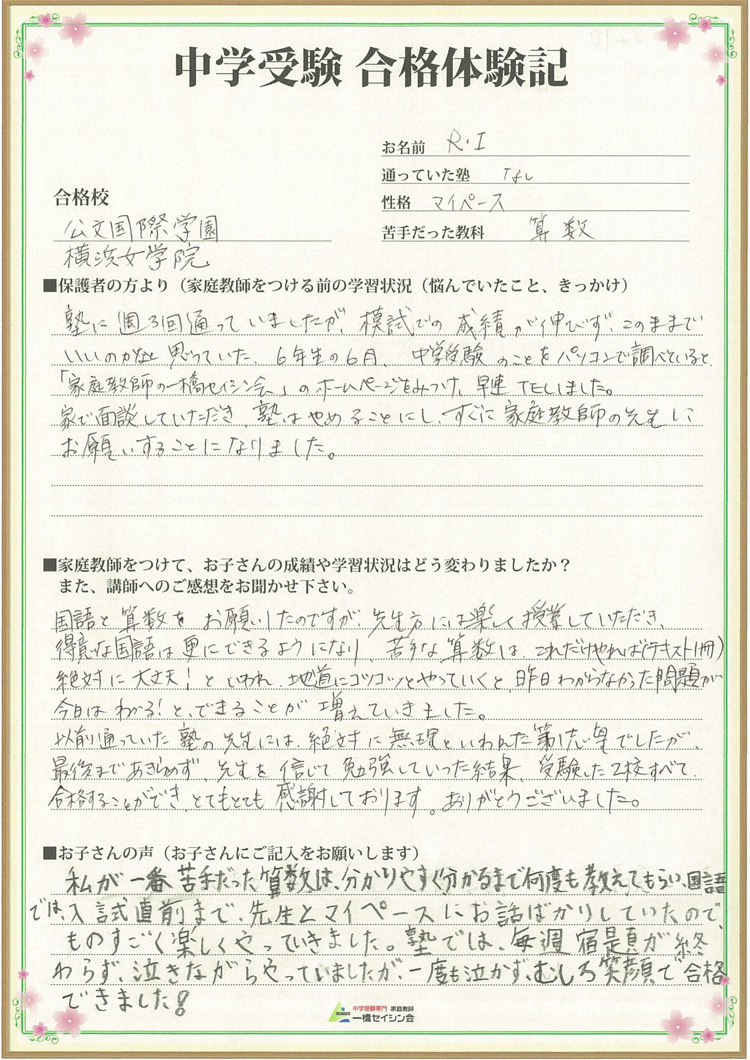 中学受験 合格体験記
お名前 R・I
通っていた塾 なし
性格 マイペース
苦手だった教科 算数
合格校
公文国際学園
横浜女学院
■保護者の方より（家庭教師をつける前の学習状況（悩んでいたこと、きっかけ）
塾に週3回通っていましたが、模試での成績が伸びず、このままで
いいのかなと思っていた、6年生の6月、中学受験のことをパソコンで調べていると、
「家庭教師の一橋セイシン会」のホームページをみつけ、早速TELしました。
家で面談していただき、塾はやめることにし、すぐに家庭教師の先生に
お願いすることになりました。
■家庭教師をつけて、お子さんの成績や学習状況はどう変わりましたか？
また、講師へのご感想をお聞かせ下さい。
国語と算数をお願いしたのですが、先生方には楽しく授業していただき、
得意な国語は更にできるようになり、苦手な算数は、これだけやれば（テキスト1冊）
絶対に大丈夫！といわれ、地道にコツコツとやっていくと、昨日わからなかった問題が
今日はわかる！と、できることが増えていきました。
以前通っていた塾の先生には、絶対に無理といわれた第1志望でしたが、
最後まであきらめず、先生を信じて勉強していった結果、受験した2校すべて
合格することができ、とてもとても感謝しております。ありがとうございました。
■お子さんの声（お子さんにご記入をお願いします）
私が一番苦手だった算数は、分かりやすく分かるまで何度も教えてもらい、国語
では、入試直前まで、先生とマイペースにお話ばかりしていたので、
ものすごく楽しくやっていきました。塾では、毎週宿題が終
わらず、泣きながらやっていましたが、一度も泣かず、むしろ笑顔で合格
できました！
中学受験専門 家庭教師
一橋セイシン会